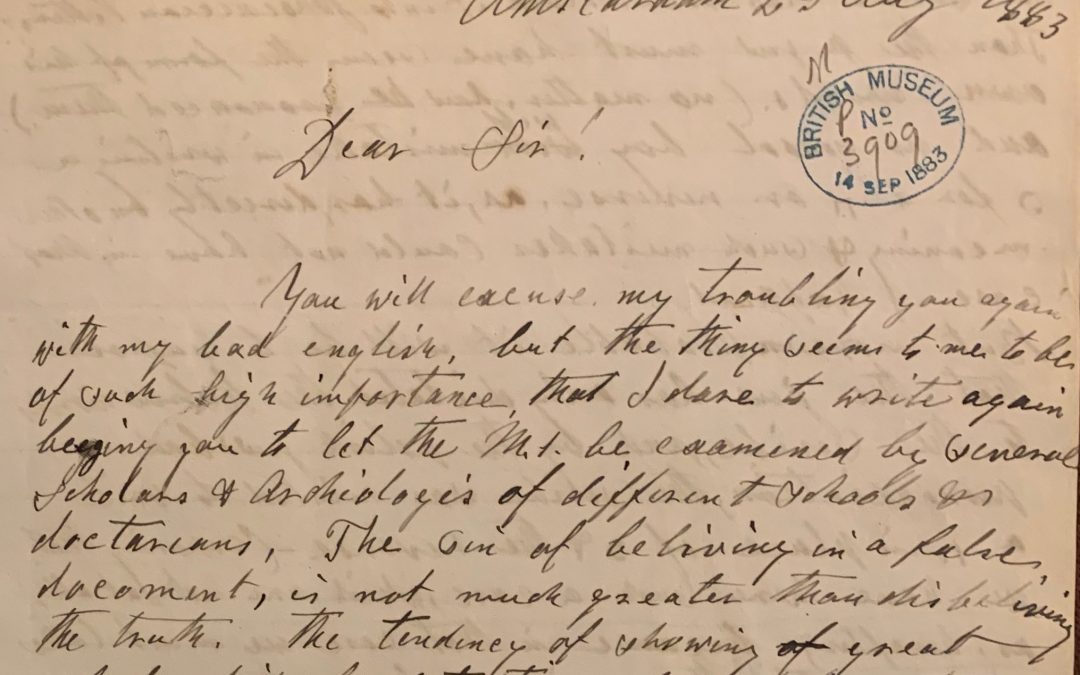 Amsterdam 23 Aug 1883
M
BRITISH MUSEUM
P No
3909
14 SEP 1883
Dear Sir!
You will excuse my troubling you again
with my bad english, but the thing seems to me to be
of such high importance, that I dare to write again
begging you to let the M.s. be examined by several
Scholars & Archiologis of different schools or
doctareans, The sin of beliving in a false
docoment, is not much greater than disbeliving
the truth. the tendency of showing of great